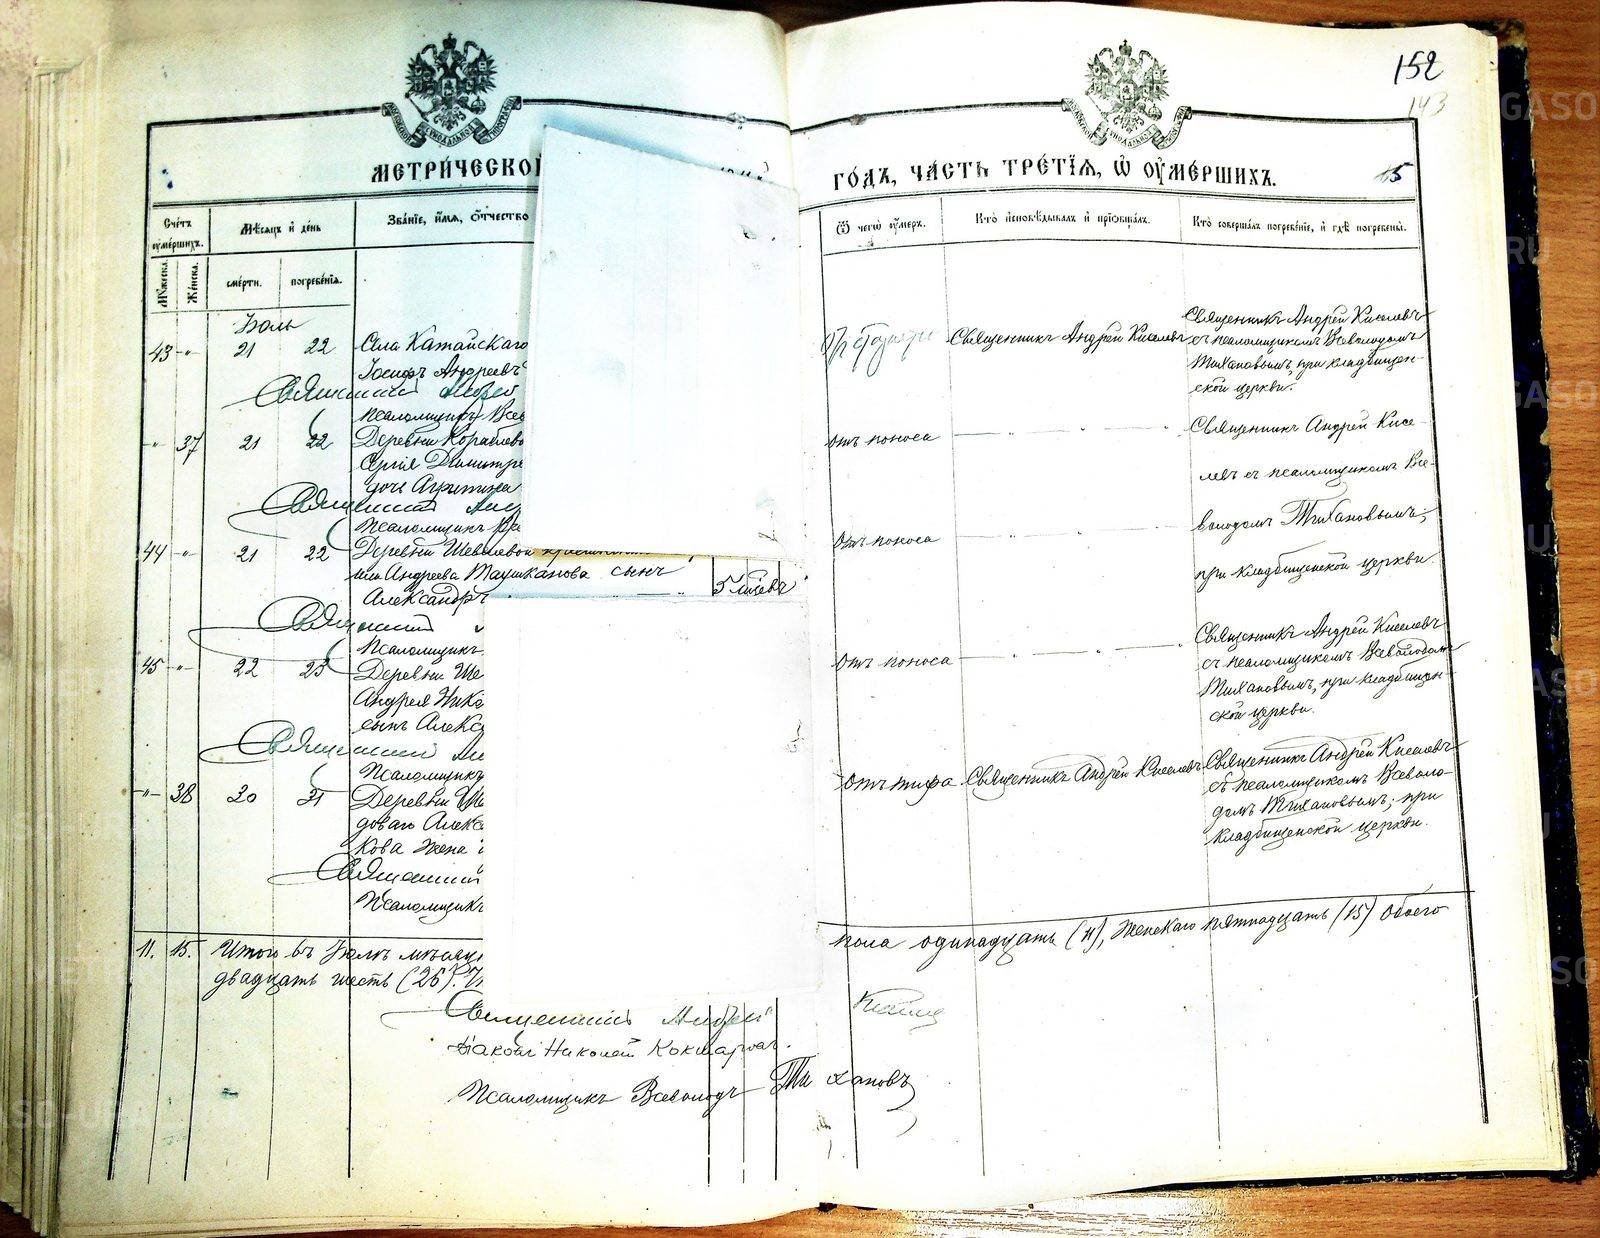 152
143
МЕТРИ́ЧЕСКОЙ
ГО́ДЪ, ЧА́СТЬ ТРЕ́ТІЯ, Ѡ҆ ОУ҆МЕ́РШИХЪ.
15
Сче́тъ оу҆ме́ршихъ.
Мѣ́сяцъ и҆ де́нь
Зва́нїе, и҆́мѧ, ѻ҆́тчество
Ѿ чегѡ̀ оу҆́меръ.
Кто̀ и҆сповѣ́дывалъ и҆ прїѡбща́лъ.
Кто̀ соверша́лъ погребе́нїе, и҆ гдѣ̀ погребены̀.
Мꙋ́жеска.
Же́нска.
сме́рти.
погребе́нїѧ.
Іюль
43 -"- 21 22 Села Катайскаго
Іосифъ Андреевъ
Священникъ Андрей
Псаломщикъ Все
Священникъ Андрей Киселевъ
Священникъ Андрей Киселевъ
съ псаломщикомъ Всеволодомъ
Тихановымъ, при кладбищен-
ской церкви.
-"- 37 21 22 Деревни Кораблево
Сергія Димитре
дочь Агрипина
Священникъ
Псаломщикъ Все
отъ поноса
Священникъ Андрей Кисе-
левъ съ псаломщикомъ Все-
володомъ Тихановымъ,
при кладбищенской церкви.
44 -"- 21 22 Деревни Шевелевой
Андреева Таушканова сынъ
Александръ 5 мѣсяцевъ
Священникъ
Псаломщикъ
Отъ поноса
45 -"- 22 23 Деревни Ше
Андрея Нико
сынъ Алекс
Священникъ
Псаломщикъ
Отъ поноса
Священникъ Андрей Киселевъ
съ псаломщикомъ Всеволодомъ
Тихановымъ, при кладбищен-
ской церкви.
-"- 38 30 31 Деревни Ше
доваго Алекс
кова жена
Священникъ
Псаломщикъ
Отъ тифа Священникъ Андрей Киселевъ
Священникъ Андрей Киселевъ
съ псаломщикомъ Всеволо-
домъ Тихановымъ, при
кладбищенской церкви.
11. 15. Итого въ Іюлѣ мѣсяц
пола одинадцать (11), Женскаго пятнадцать (15) Обоего
двадцать шесть (26).
Священникъ Андрей
Діаконъ Николай Кокшаровъ.
Псаломщикъ Всеволодъ Тихановъ